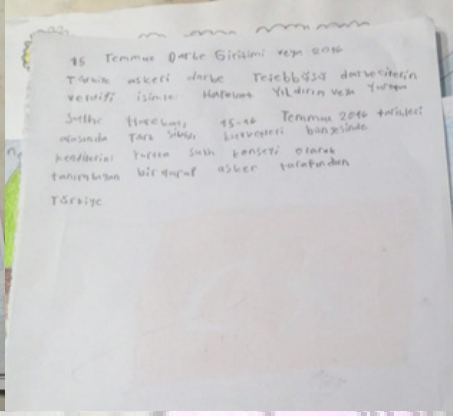 15 Temmuz Darbe Girişimi veya 2016
Türkiye askeri darbe Teşebbüsü darbecilerin
verdiği isimle: Harekat Yıldırım veya Yurtta
Sulh Harekatı, 15-16 Temmuz 2016 tarihleri
arasında Türk Silahlı kuvvetleri bünyesinde
kendilerini Yurtta Sulh konseyi olarak
tanımlayan bir grup asker tarafından
Türkiye